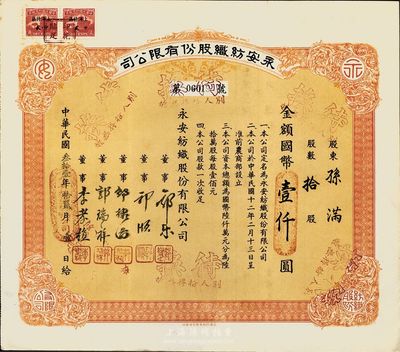 永安紡織股份有限公司
第0601號
股東 孫滿
股數 拾 股
金額國幣壹仟圓
一本公司定名為永安紡織股份有限公司
二本公司於中華民國十一年二月十三日呈
准前農商部設立
三本公司資本總額為國幣陸仟萬元分為陸
拾萬股每股壹佰元
四本公司股款一次收足
永安紡織股份有限公司
董事 郭樂
董事 郭順
董事
董事 郭瑞祥
董事
中華民國 年 月 日給